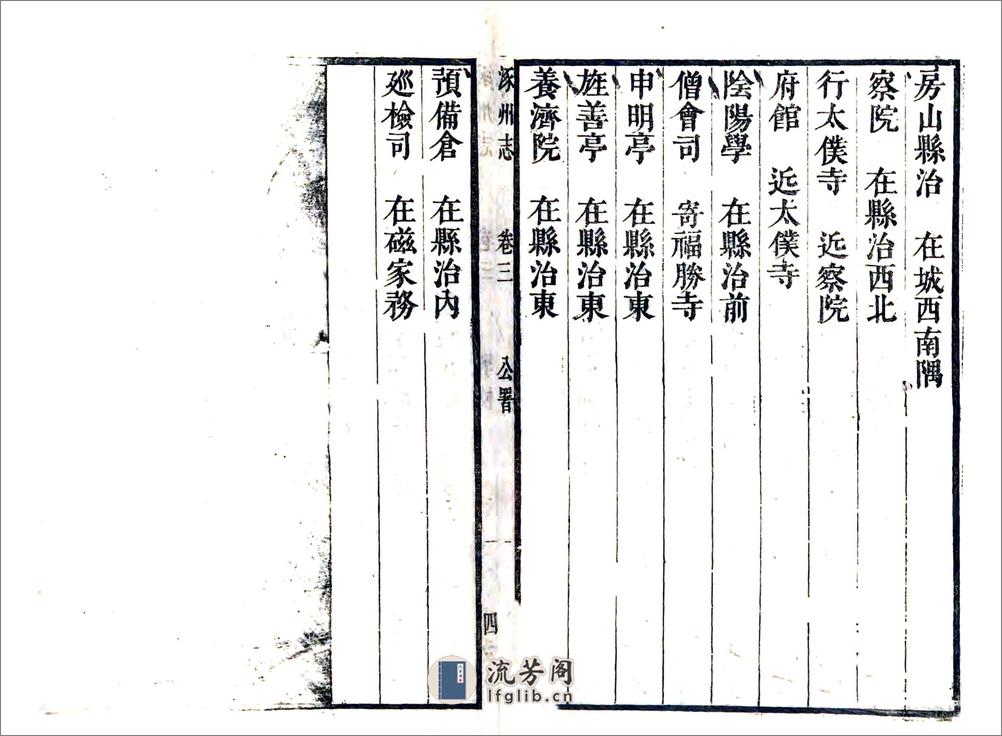 房山縣治　在城西南隅
察院　在縣治西北
行太僕寺　近察院
府館　近太僕寺
陰陽學　在縣治前
僧會司　寄福勝寺
申明亭　在縣治東
旌善亭　在縣治東
養濟院　在縣治東
涿州志　卷三　公署　四
預備倉　在縣治內
廵檢司　在磁家務
流芳阁
lfglib.cn